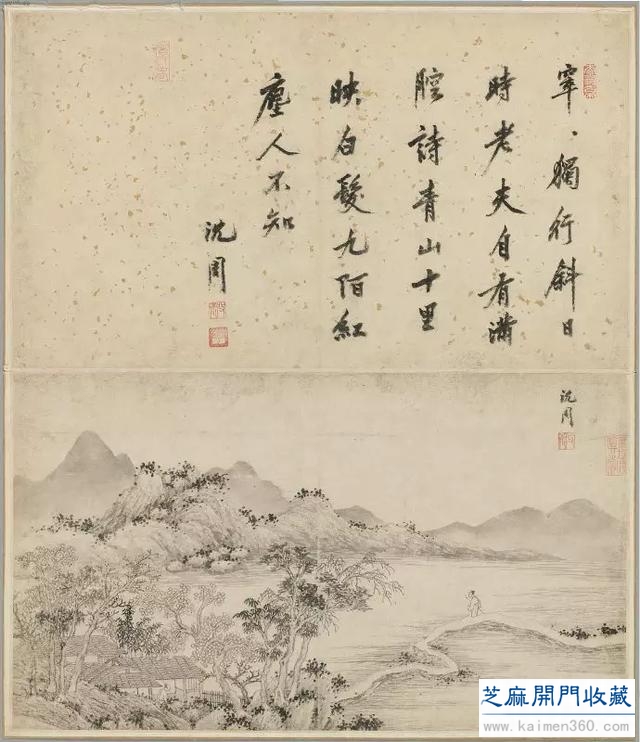 窣、獨行斜日
時老夫自有滿
腔詩青山十里
映白髮九陌紅
塵人不知
沈周
沈周
芝麻開門收藏
www.kaimen360.com